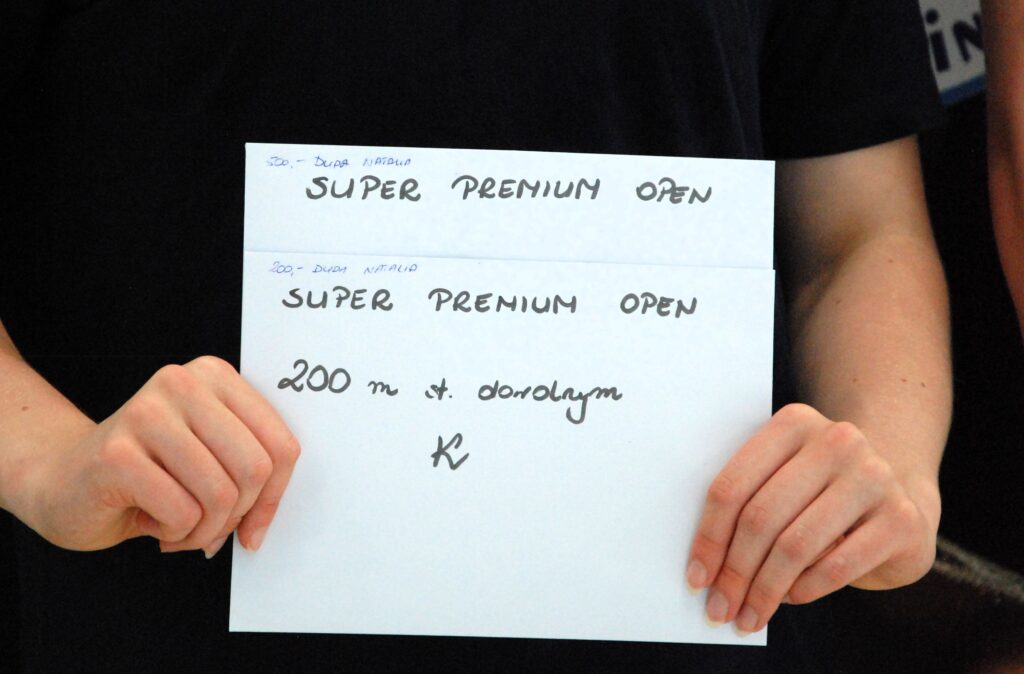 500,- DUDA NATALIA
SUPER PREMIUM OPEN
200,- DUDA NATALIA
SUPER PREMIUM OPEN
200 m st. dowolnym
K
iN